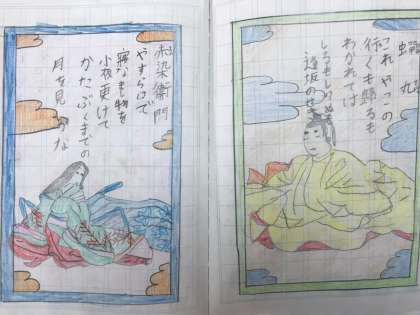 蝉丸
これやこの
行くも帰るも
わかれては
しるもしらぬも
逢坂のせき
赤染衛門
やすらはで
寝なまし物を
小夜更けて
かたぶくまでの
月を見しかな